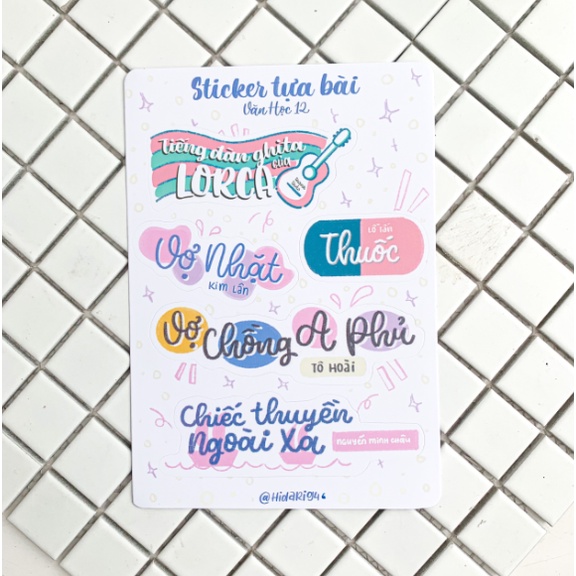 Sticker tựa bài
Văn Học 12
Tiếng đàn ghita
của
LORCA
Vợ Nhặt
Kim Lân
Lỗ Tấn
Thuốc
Vợ Chồng A Phủ
TÔ HOÀI
Chiếc thuyền
Ngoài Xa
NGUYỄN MINH CHÂU
@HiDaRi94